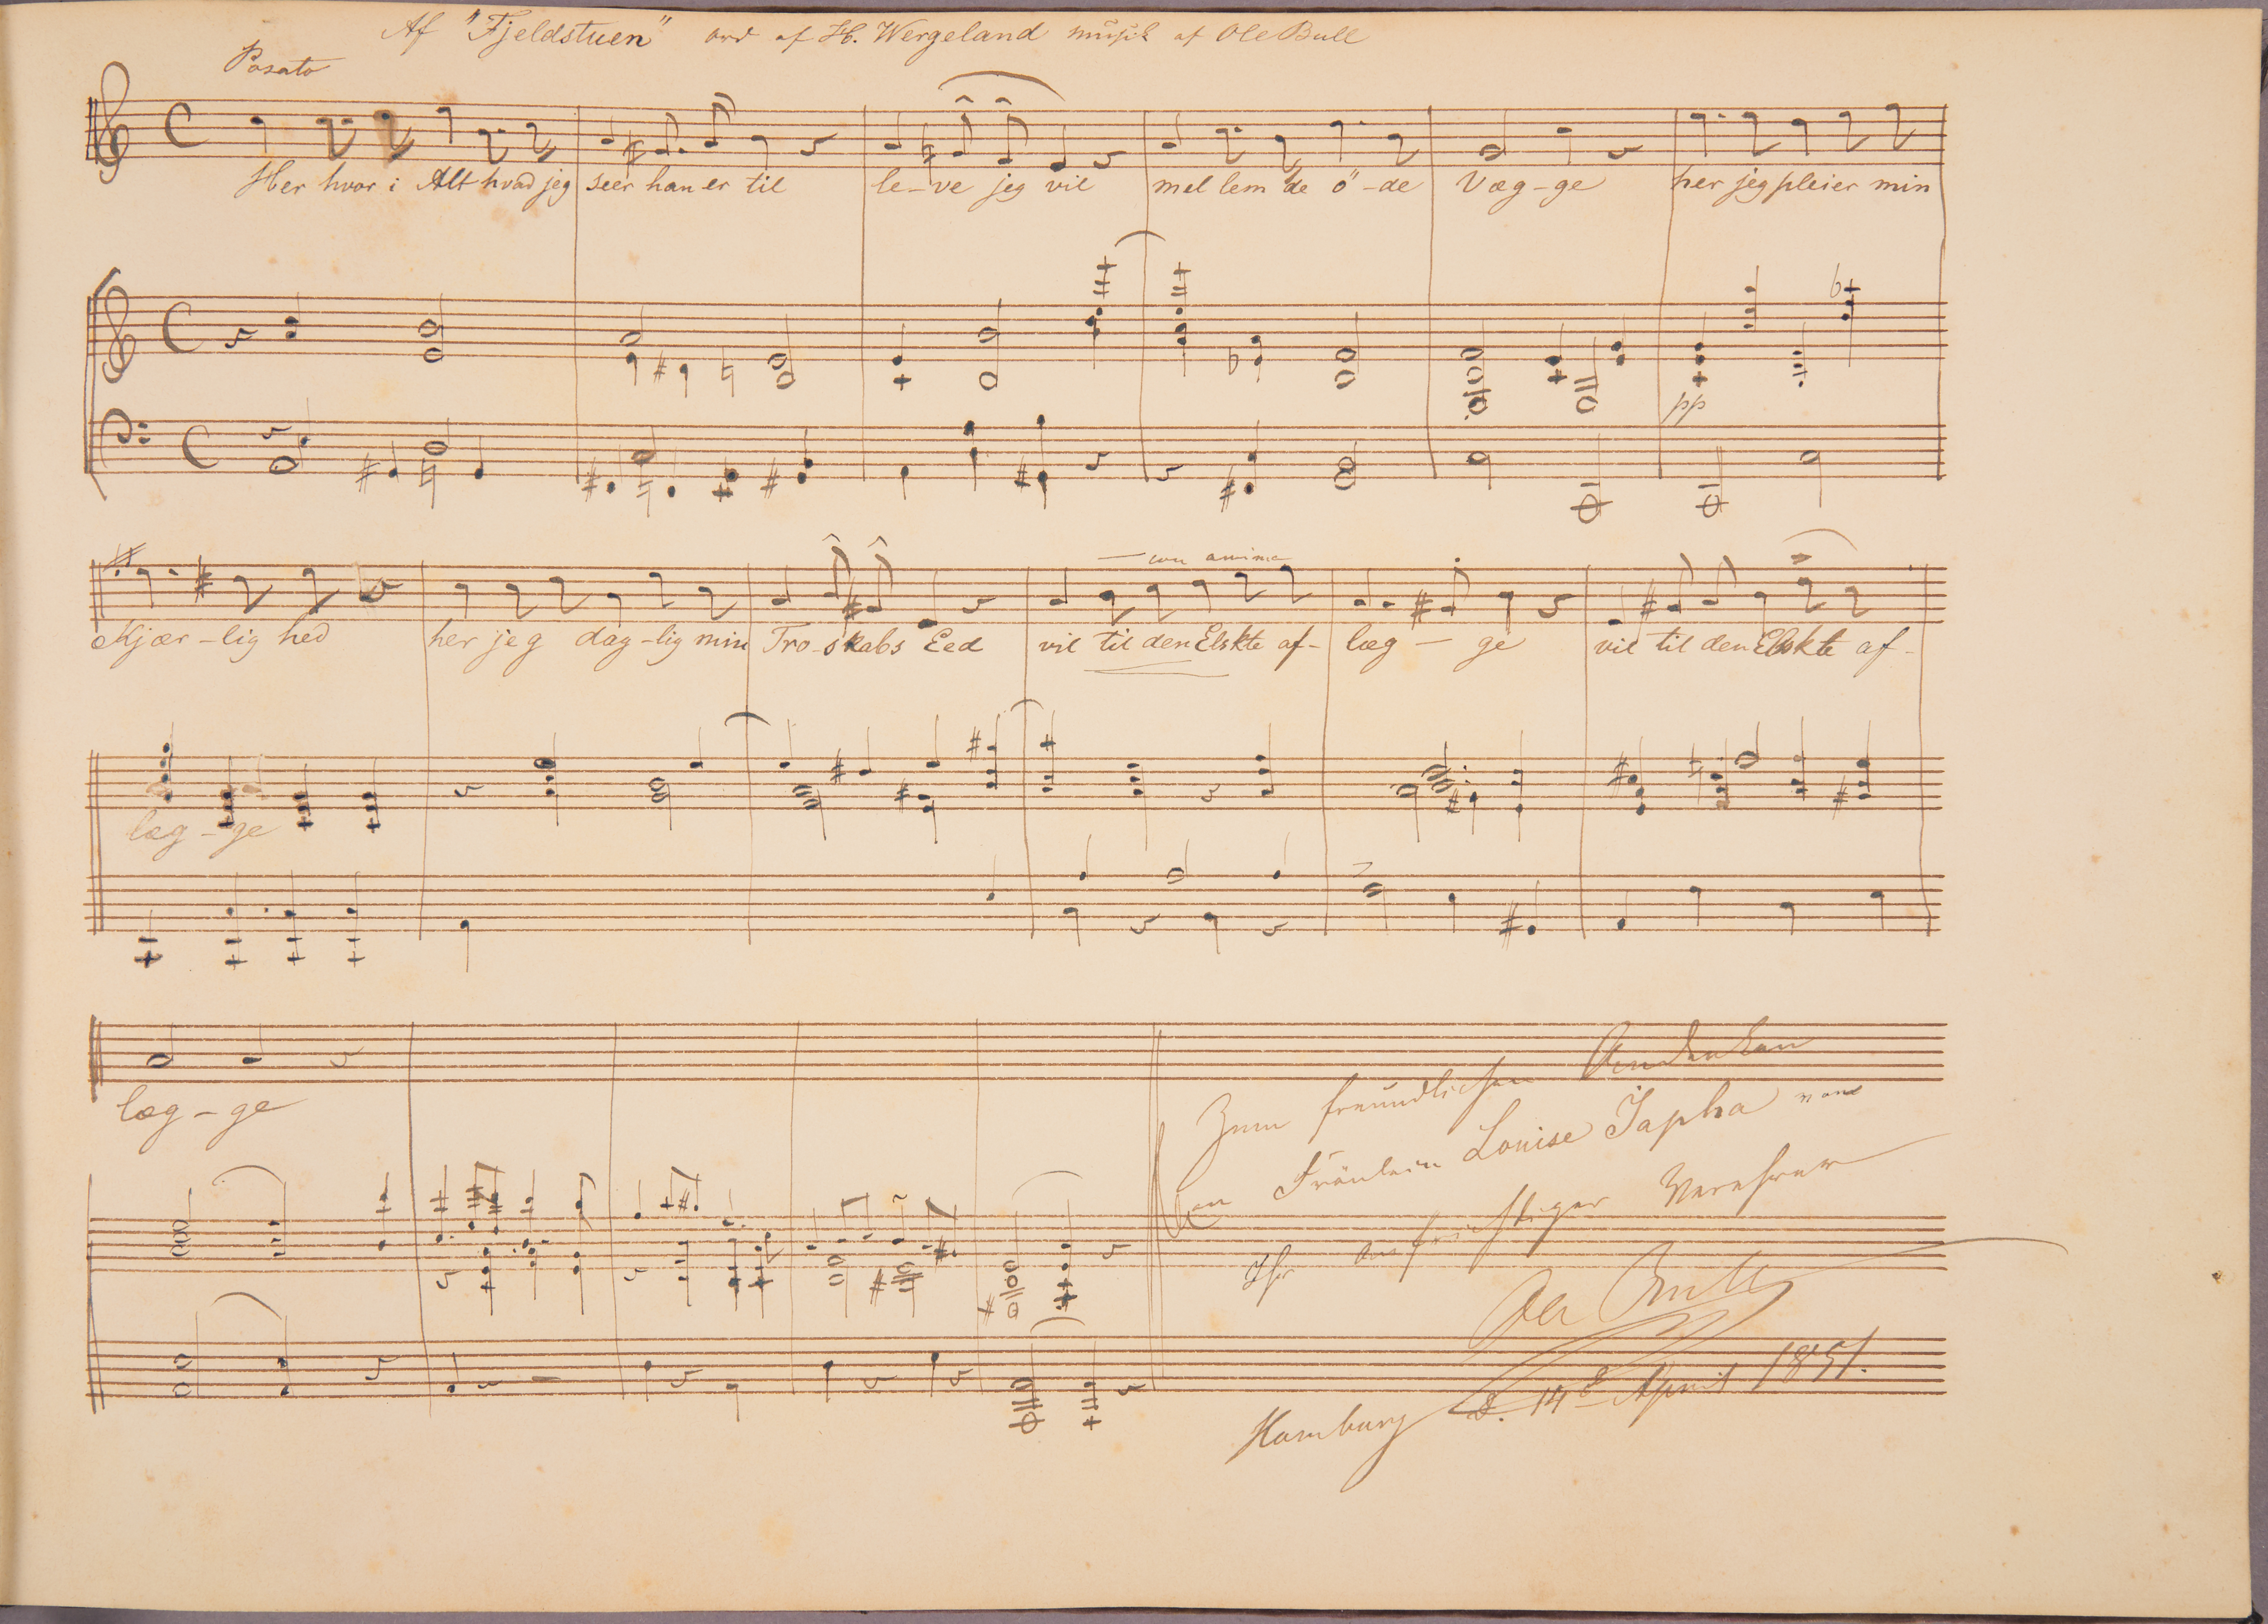 Af "Fjeldstuen" ord af H. Wergeland musik af Ole Bull
Posato
Her hvor i Alt hvad jeg seer han er til le-ve jeg vil mel lem de ö-de Væg-ge her jeg pleier min
pp
con anima
Kjær-lig hed her jeg dag-lig min Tro-skabs Eed vil til den Elskte af- læg-ge vil til den Elskte af-
læg-ge
læg-ge
Zum freundlichen Andenken
an Fräulein Louise Japha von
Ihr aufrichtiger Verehrer
Ole Bull
Hamburg d. 14 April 1851.